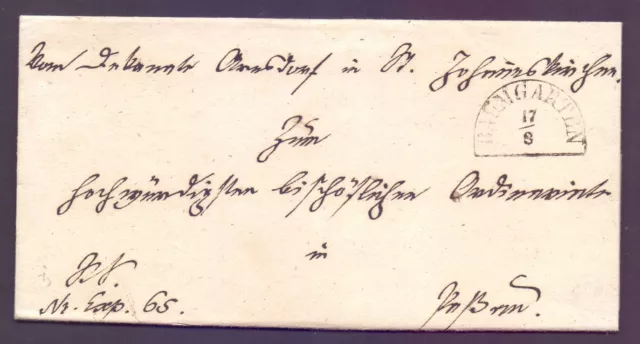 Vom Dekanate Arnsdorf in St. Johanneskirchen.
BAUMGARTEN
17
8
Zum
hochwürdigsten bischöflichen Ordinariate
in
Nr. Exp. 65.
Passau.